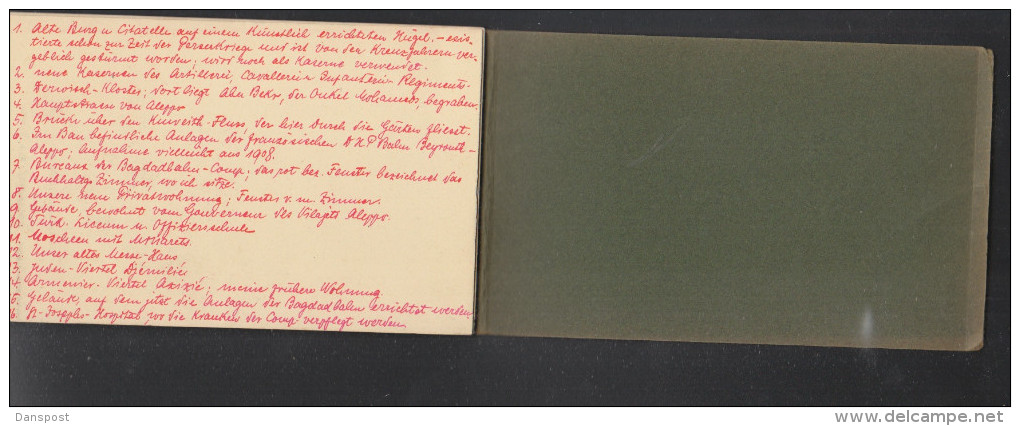 1. Alte Burg u Citatelle auf einem künstlich errichteten Hügel. – exis-
tierte schon zur Zeit der Perserkriege und ist von den Kreuzfahrern ver-
geblich gestürmt worden; wird noch als Kaserne verwendet.
2. neue Kasernen des Artillerie, Cavallerie u Infanterie Regiments.
3. Derwisch-Kloster; dort liegt Abu Bekr, der Onkel Mohameds, begraben.
4. Hauptstrasse von Aleppo
5. Brücke über den Fluss, der hier durch die Gärten fliesst.
6. Im Bau befindliche Anlagen der französischen D.H.P Bahn Beyrouth-
Aleppo; Aufnahme vielleicht aus 1908.
7. Bureaux der Bagdadbahn-Comp; das rot bez. Fenster bezeichnet das
Buchhaltgs Zimmer, wo ich sitze.
8. Unsere neue Privatwohnung; Fenster v. m. Zimmer.
9. Gebäude, bewohnt vom Gouverneur des Vilajets Aleppo.
10. Türk. Liceum u. Offiziersschule
11. Moscheen mit Minarets.
12. Unser altes Messe-Haus
3. Juden-Viertel Djémilié
4. Armenier-Viertel Azizié; meine frühere Wohnung.
5. Gelände, auf dem jetzt die Anlagen der Bagdadbahn errichtet werden
6. St-Josephs-Hospital, wo die Kranken der Comp. verpflegt werden.
Danspost
www.delcampe.net